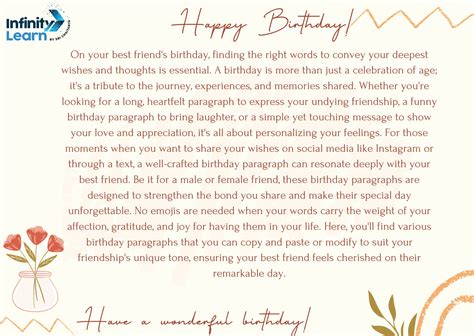 Infinity
Learn
BY SRI CHAITANYA
Happy Birthday!
On your best friend's birthday, finding the right words to convey your deepest
wishes and thoughts is essential. A birthday is more than just a celebration of age;
it's a tribute to the journey, experiences, and memories shared. Whether you're
looking for a long, heartfelt paragraph to express your undying friendship, a funny
birthday paragraph to bring laughter, or a simple yet touching message to show
your love and appreciation, it's all about personalizing your feelings. For those
moments when you want to share your wishes on social media like Instagram or
through a text, a well-crafted birthday paragraph can resonate deeply with your
best friend. Be it for a male or female friend, these birthday paragraphs are
designed to strengthen the bond you share and make their special day
unforgettable. No emojis are needed when your words carry the weight of your
affection, gratitude, and joy for having them in your life. Here, you'll find various
birthday paragraphs that you can copy and paste or modify to suit your
friendship's unique tone, ensuring your best friend feels cherished on their
remarkable day.
Have a wonderful birthday!